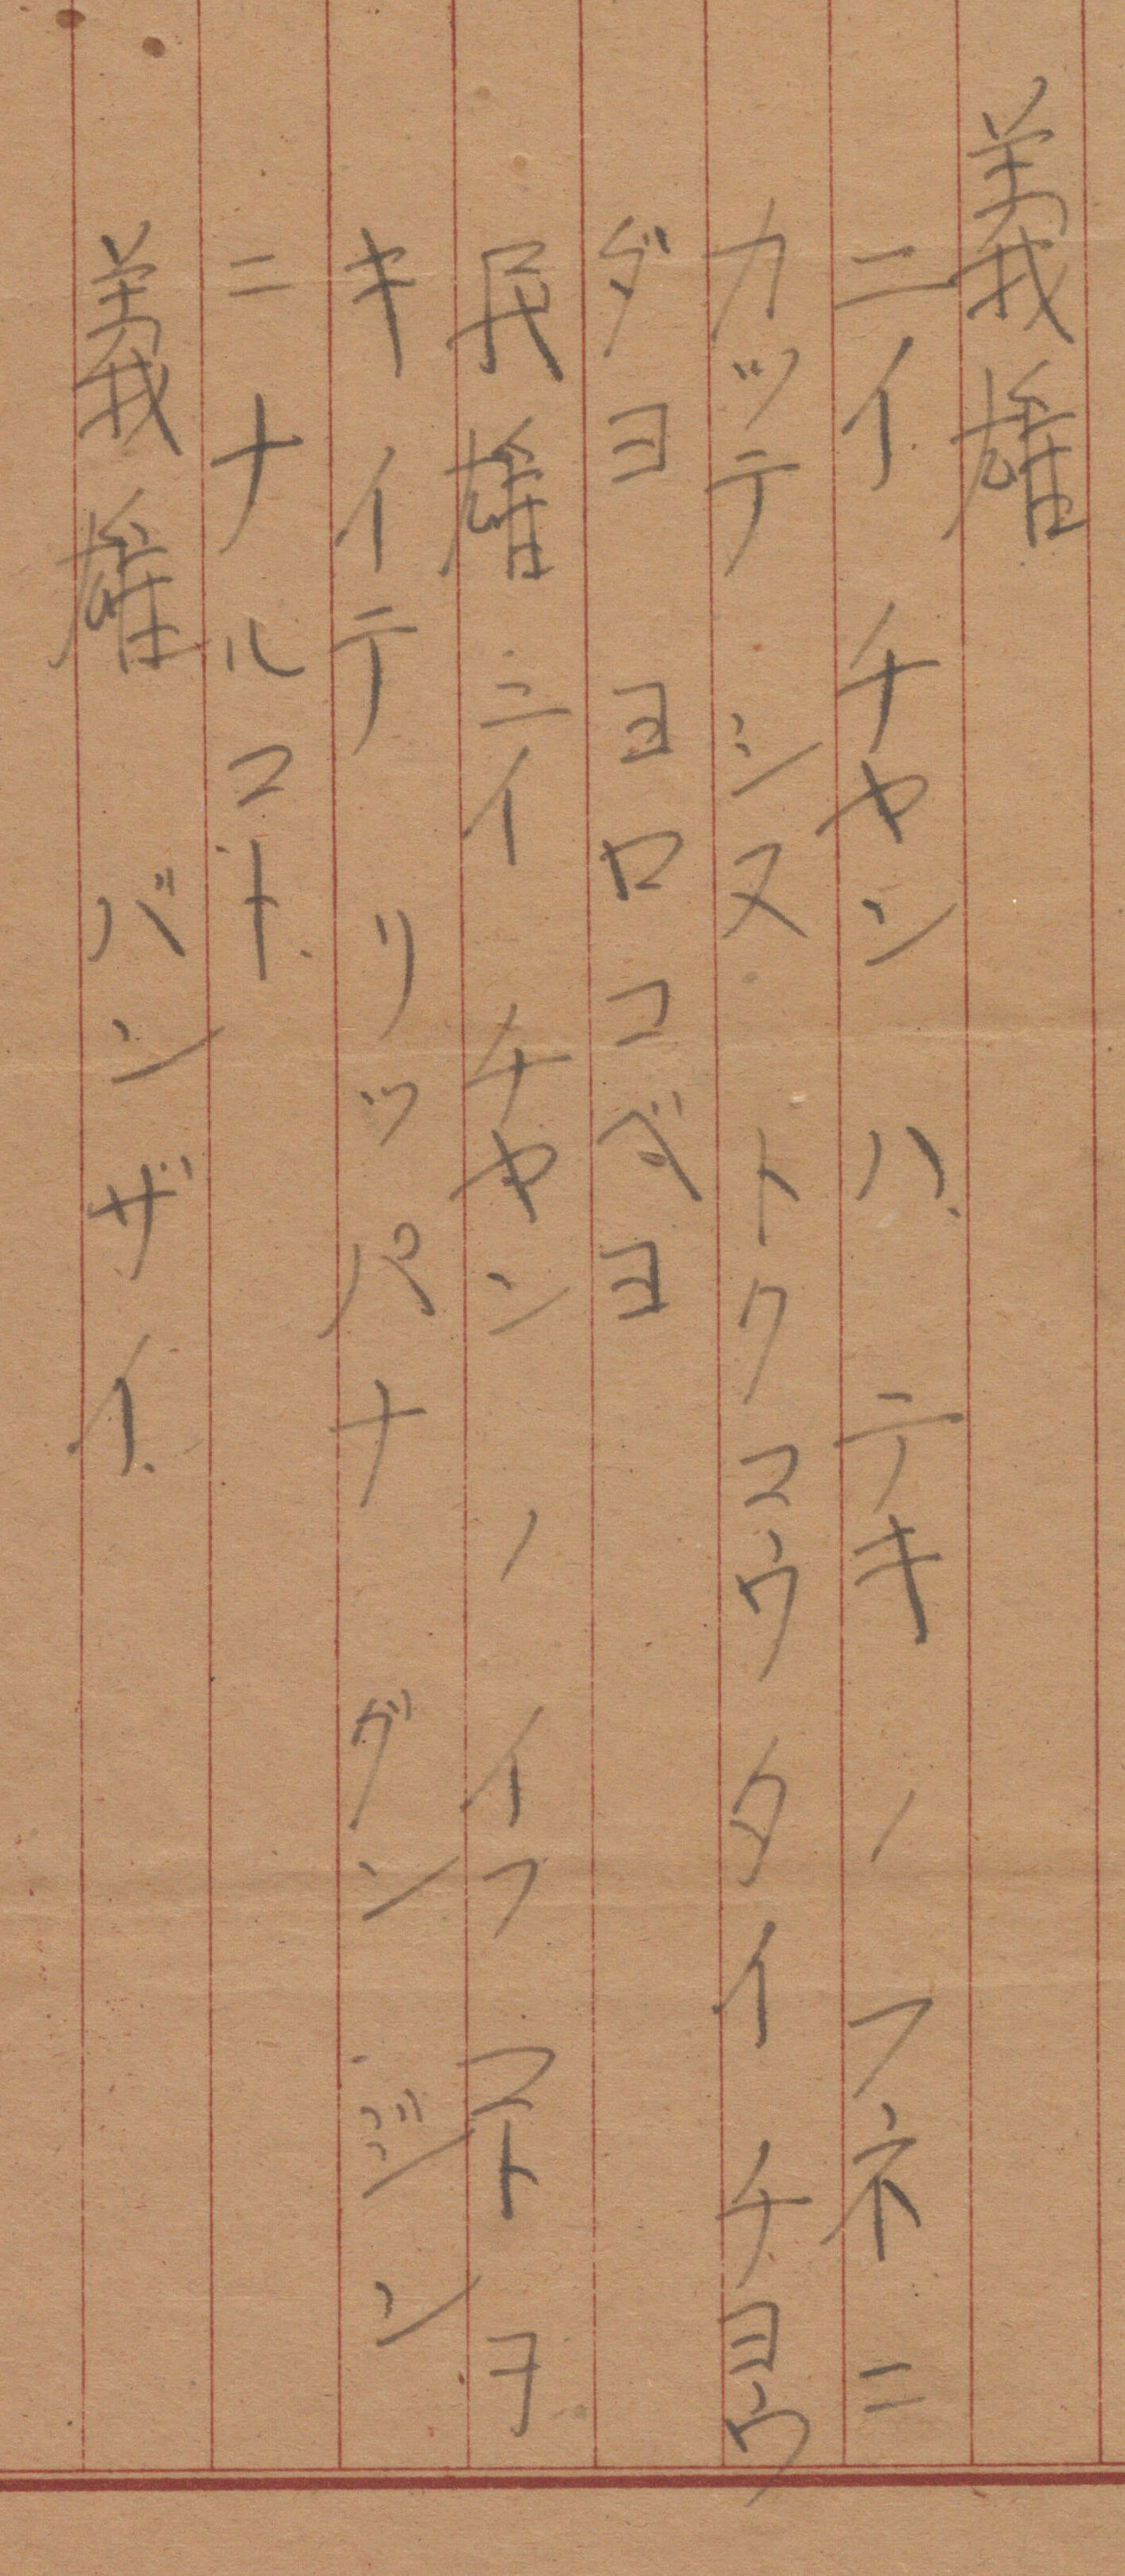 義雄
ニイチヤン ハ テキ ノ フネニ
カッテ シヌ トクコウ タイ チヨウ
ダヨ ヨロコベヨ
民雄 ニイ チヤン ノ イフ コトヲ
キイテ リッパナ グン ジン
ニナルコト
義雄 バンザイ